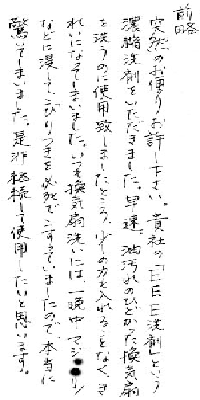 前略
突然のお便りお許し下さい。貴社の「EEE洗剤」という
濃縮洗剤をいただきました。早速、油汚れのひどかった換気扇
を洗うのに使用致しましたところ、少しの力を入れることなく、き
れいになってしまいました。いつも換気扇洗いには、一晩中マジ●リン
などに浸してこびりつきを必死でこすっていましたので本当に
驚いてしまいました。是非継続して使用したいと思います。